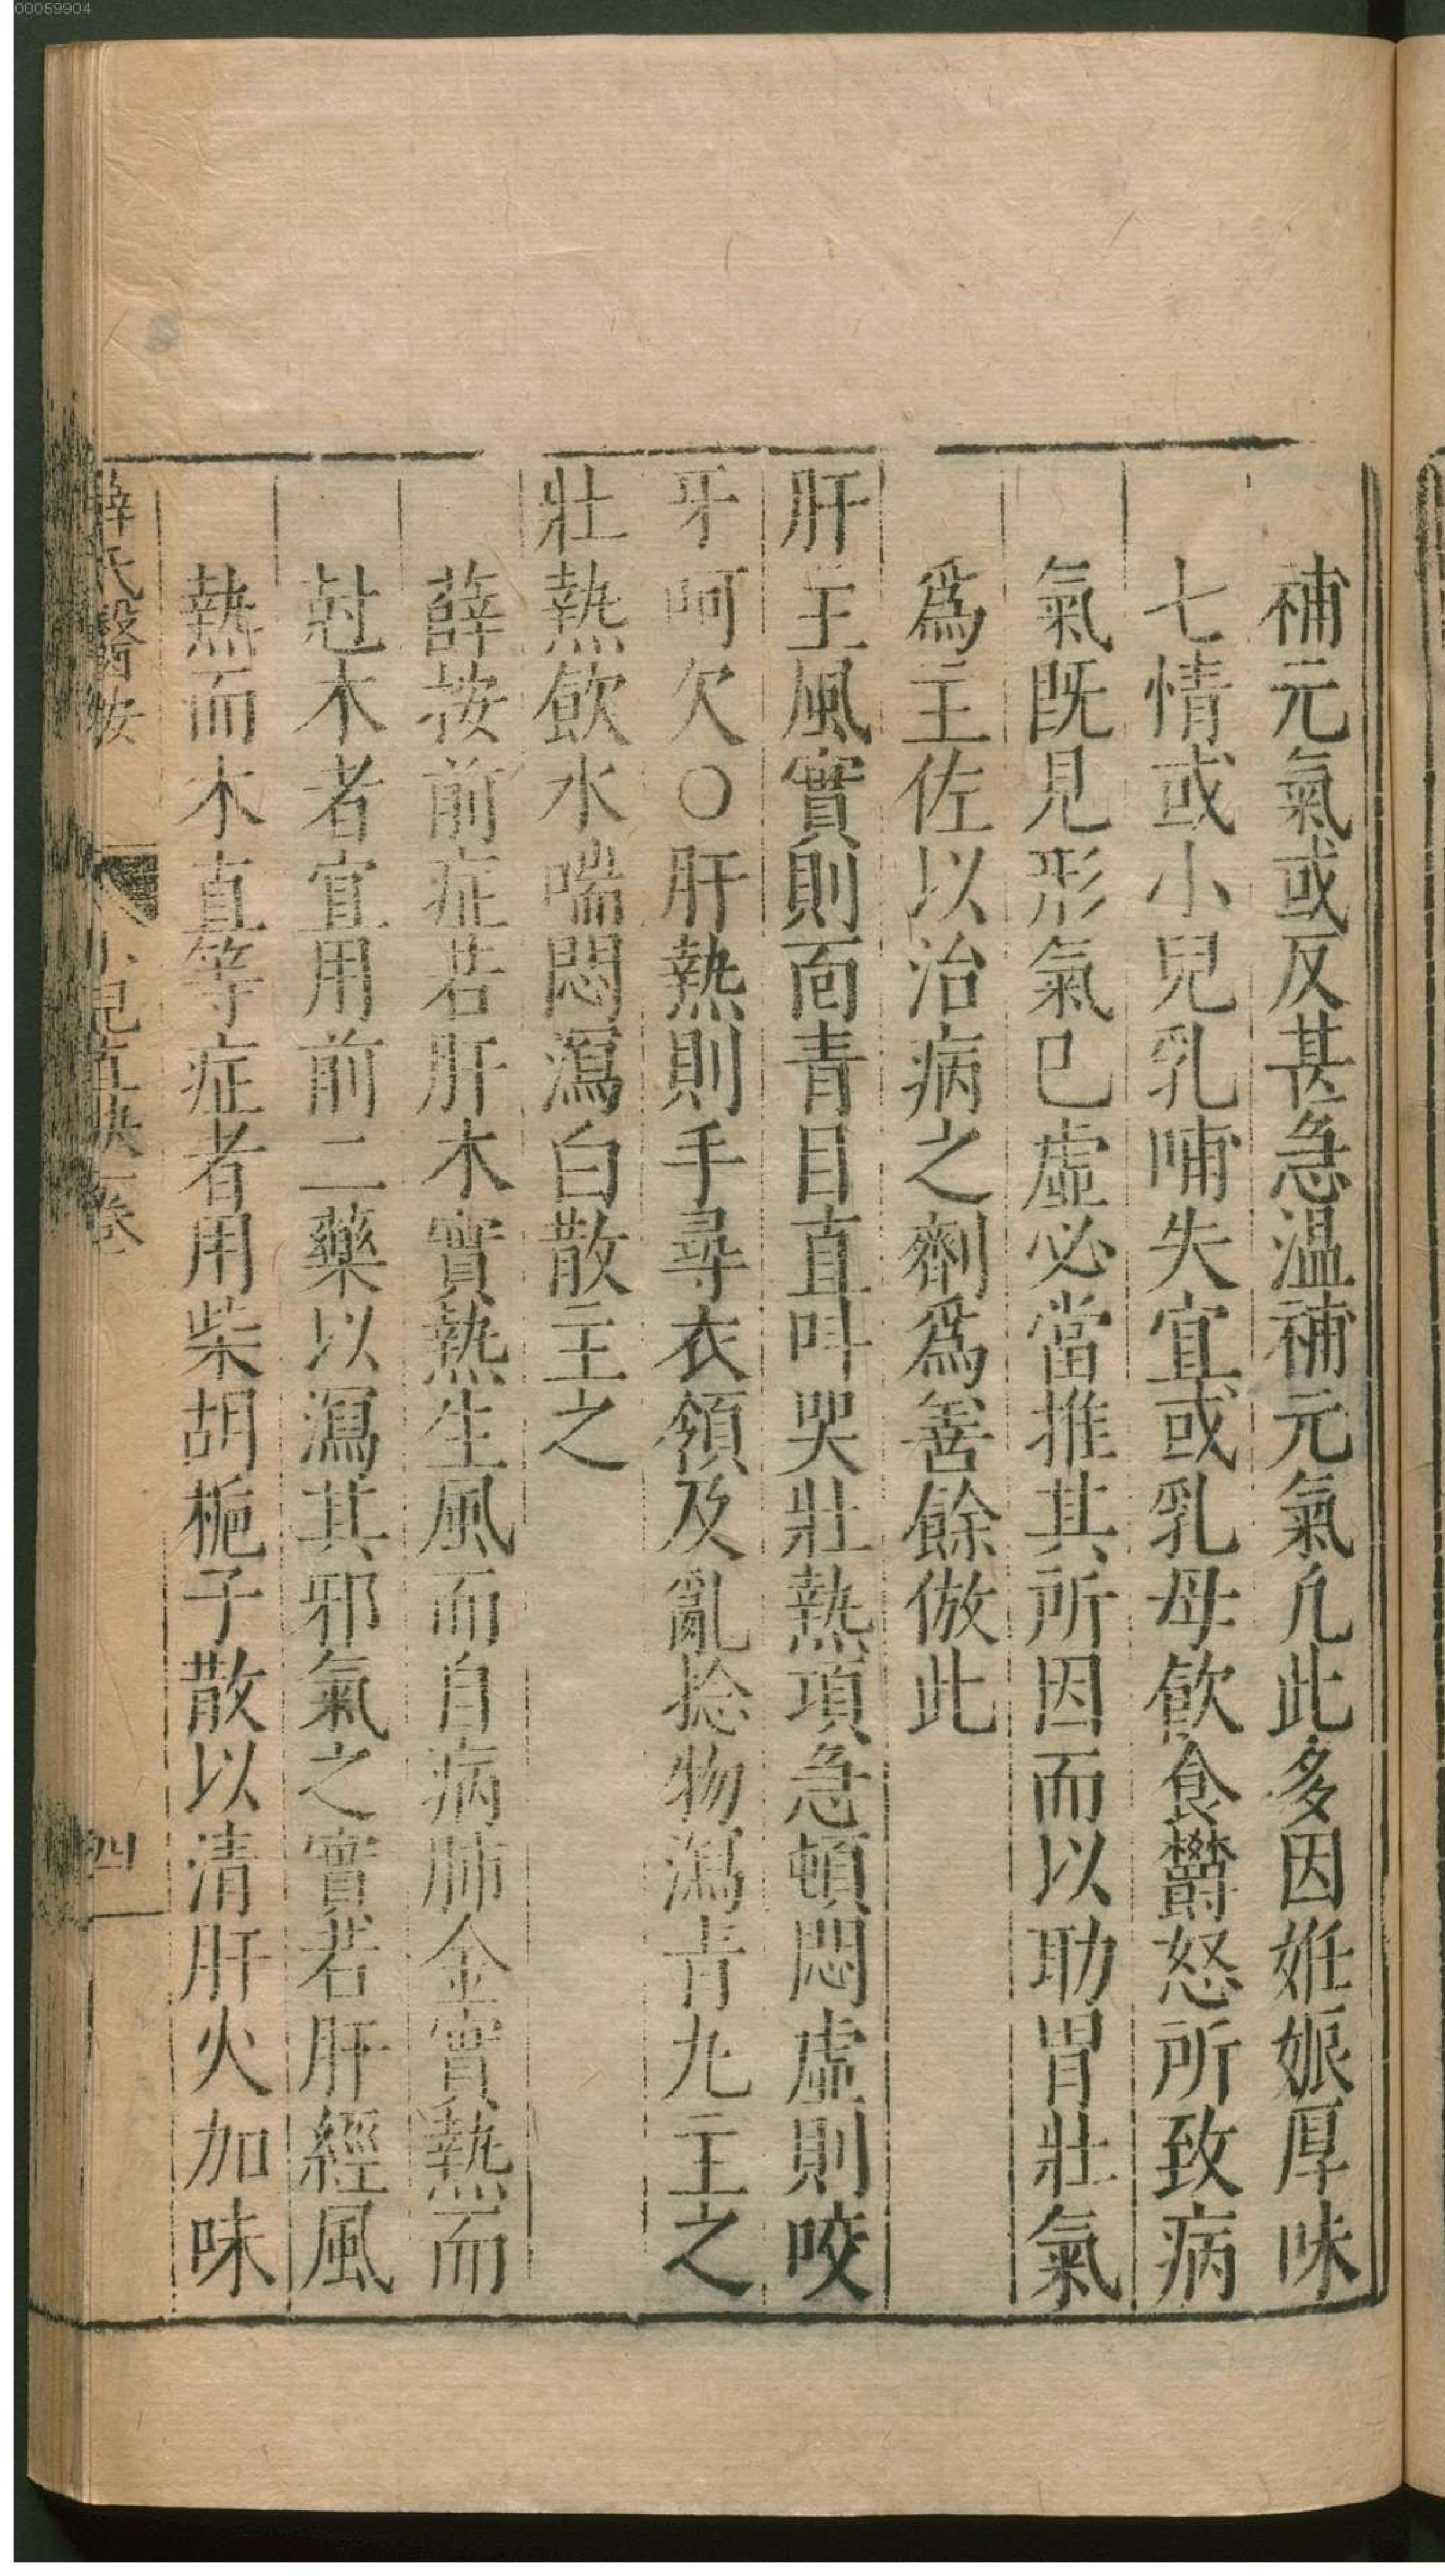 00059904
補元氣或反甚急温補元氣凢此多因姙娠厚味
七情或小兒乳哺失宜或乳母飲食欝怒所致病
氣既見形氣巳虛必當推其所因而以助胃壯氣
爲主佐以治病之劑爲善餘倣此
肝主風實則面青目直呌哭壯熱項急頓悶虛則咬
牙呵欠○肝熱則手尋衣領及亂捻物瀉青丸主之
壯熱飲水喘悶瀉白散主之
薛按前症若肝木實熱生風而自病肺金實熱而
尅木者宜用前二藥以瀉其邪氣之實若肝經風
熱而木直等症者用柴胡梔子散以清肝火加味
薛氏醫按 小兒直訣一卷 四